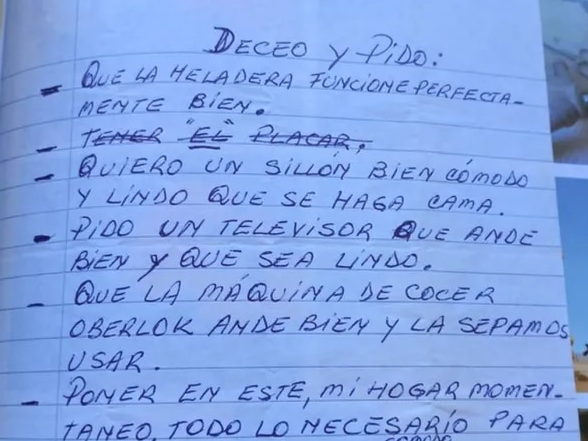 DECEO Y PIDO:
- QUE LA HELADERA FUNCIONE PERFECTA-
MENTE BIEN.
- TENER "EL" PLACAR,
- QUIERO UN SILLÓN BIEN CÓMODO
Y LINDO QUE SE HAGA CAMA.
- PIDO UN TELEVISOR QUE ANDE
BIEN Y QUE SEA LINDO.
- QUE LA MÁQUINA DE COCER
OBERLOK ANDE BIEN Y LA SEPAMOS
USAR.
- PONER EN ESTE, MI HOGAR MOMEN-
TANEO, TODO LO NECESARIO PARA